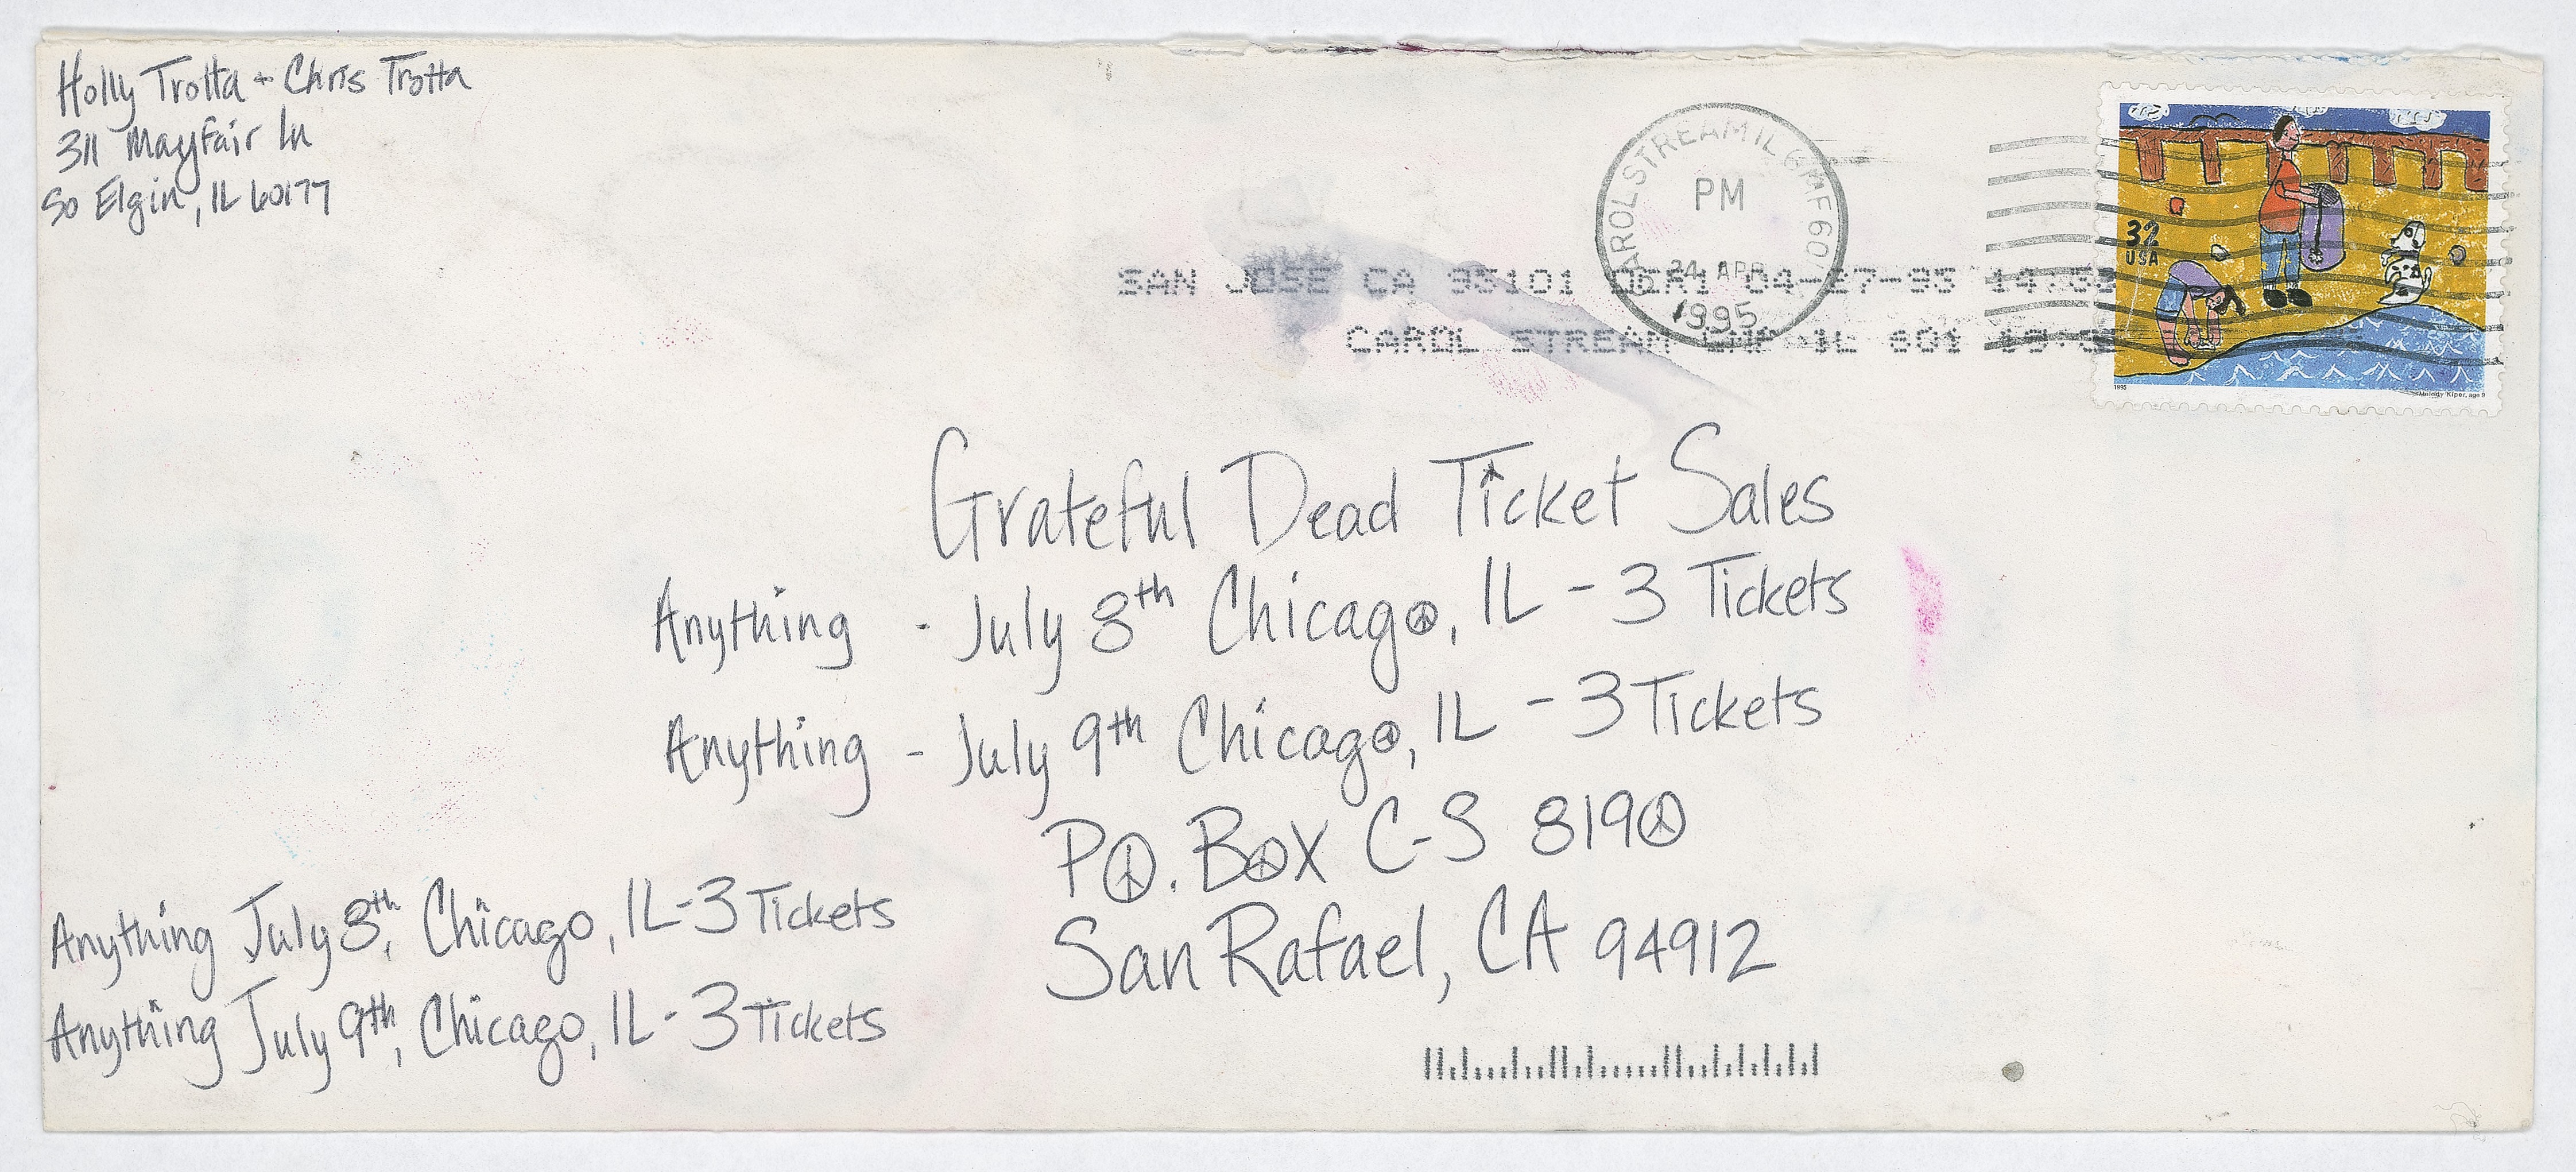 Holly Trotta + Chris Trotta
311 Mayfair Ln
So Elgin, IL 60177
CAROL STREAM IL GMF 60
PM
24 APR
1995
32
USA
1995
Melody Kiper, age 8
SAN JOSE CA 95101 04-27-95
CAROL STREAM GMF IL 601
Grateful Dead Ticket Sales
Anything - July 8th Chicago, IL - 3 Tickets
Anything - July 9th Chicago, IL - 3 Tickets
P.O. Box C-S 8190
San Rafael, CA 94912
Anything July 8th, Chicago, IL - 3 Tickets
Anything July 9th, Chicago, IL - 3 Tickets